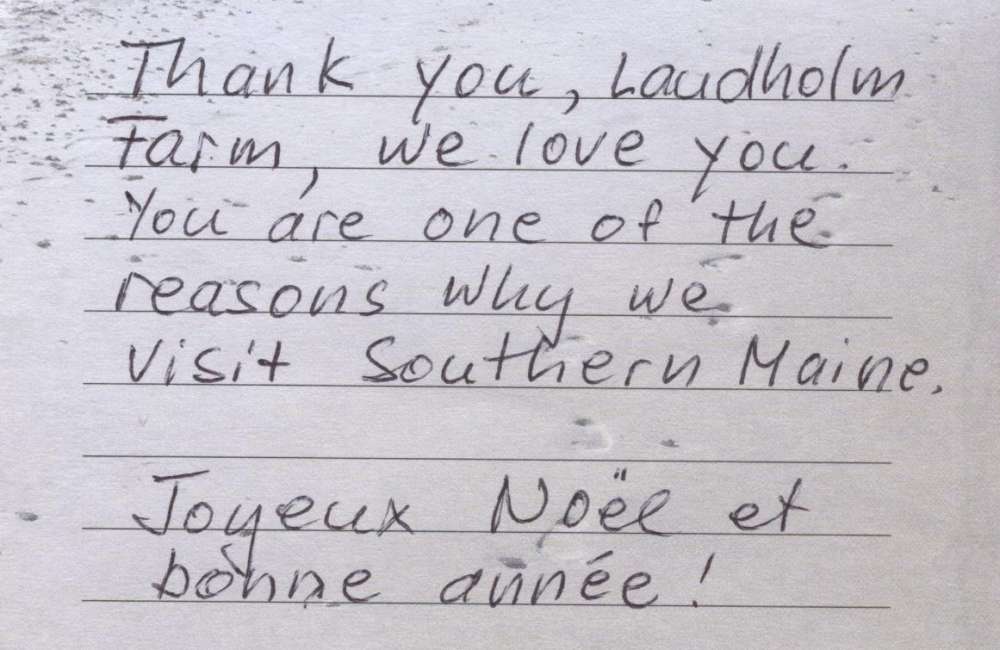 Thank you, Laudholm
Farm, we love you.
You are one of the
reasons why we
visit Southern Maine.
Joyeux Noël et
bonne année!